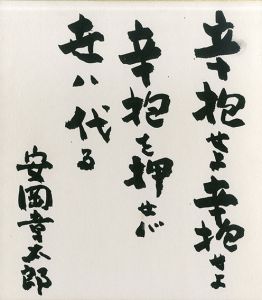 辛抱せよ辛抱せよ
辛抱を押せば
世は代る
安岡章太郎